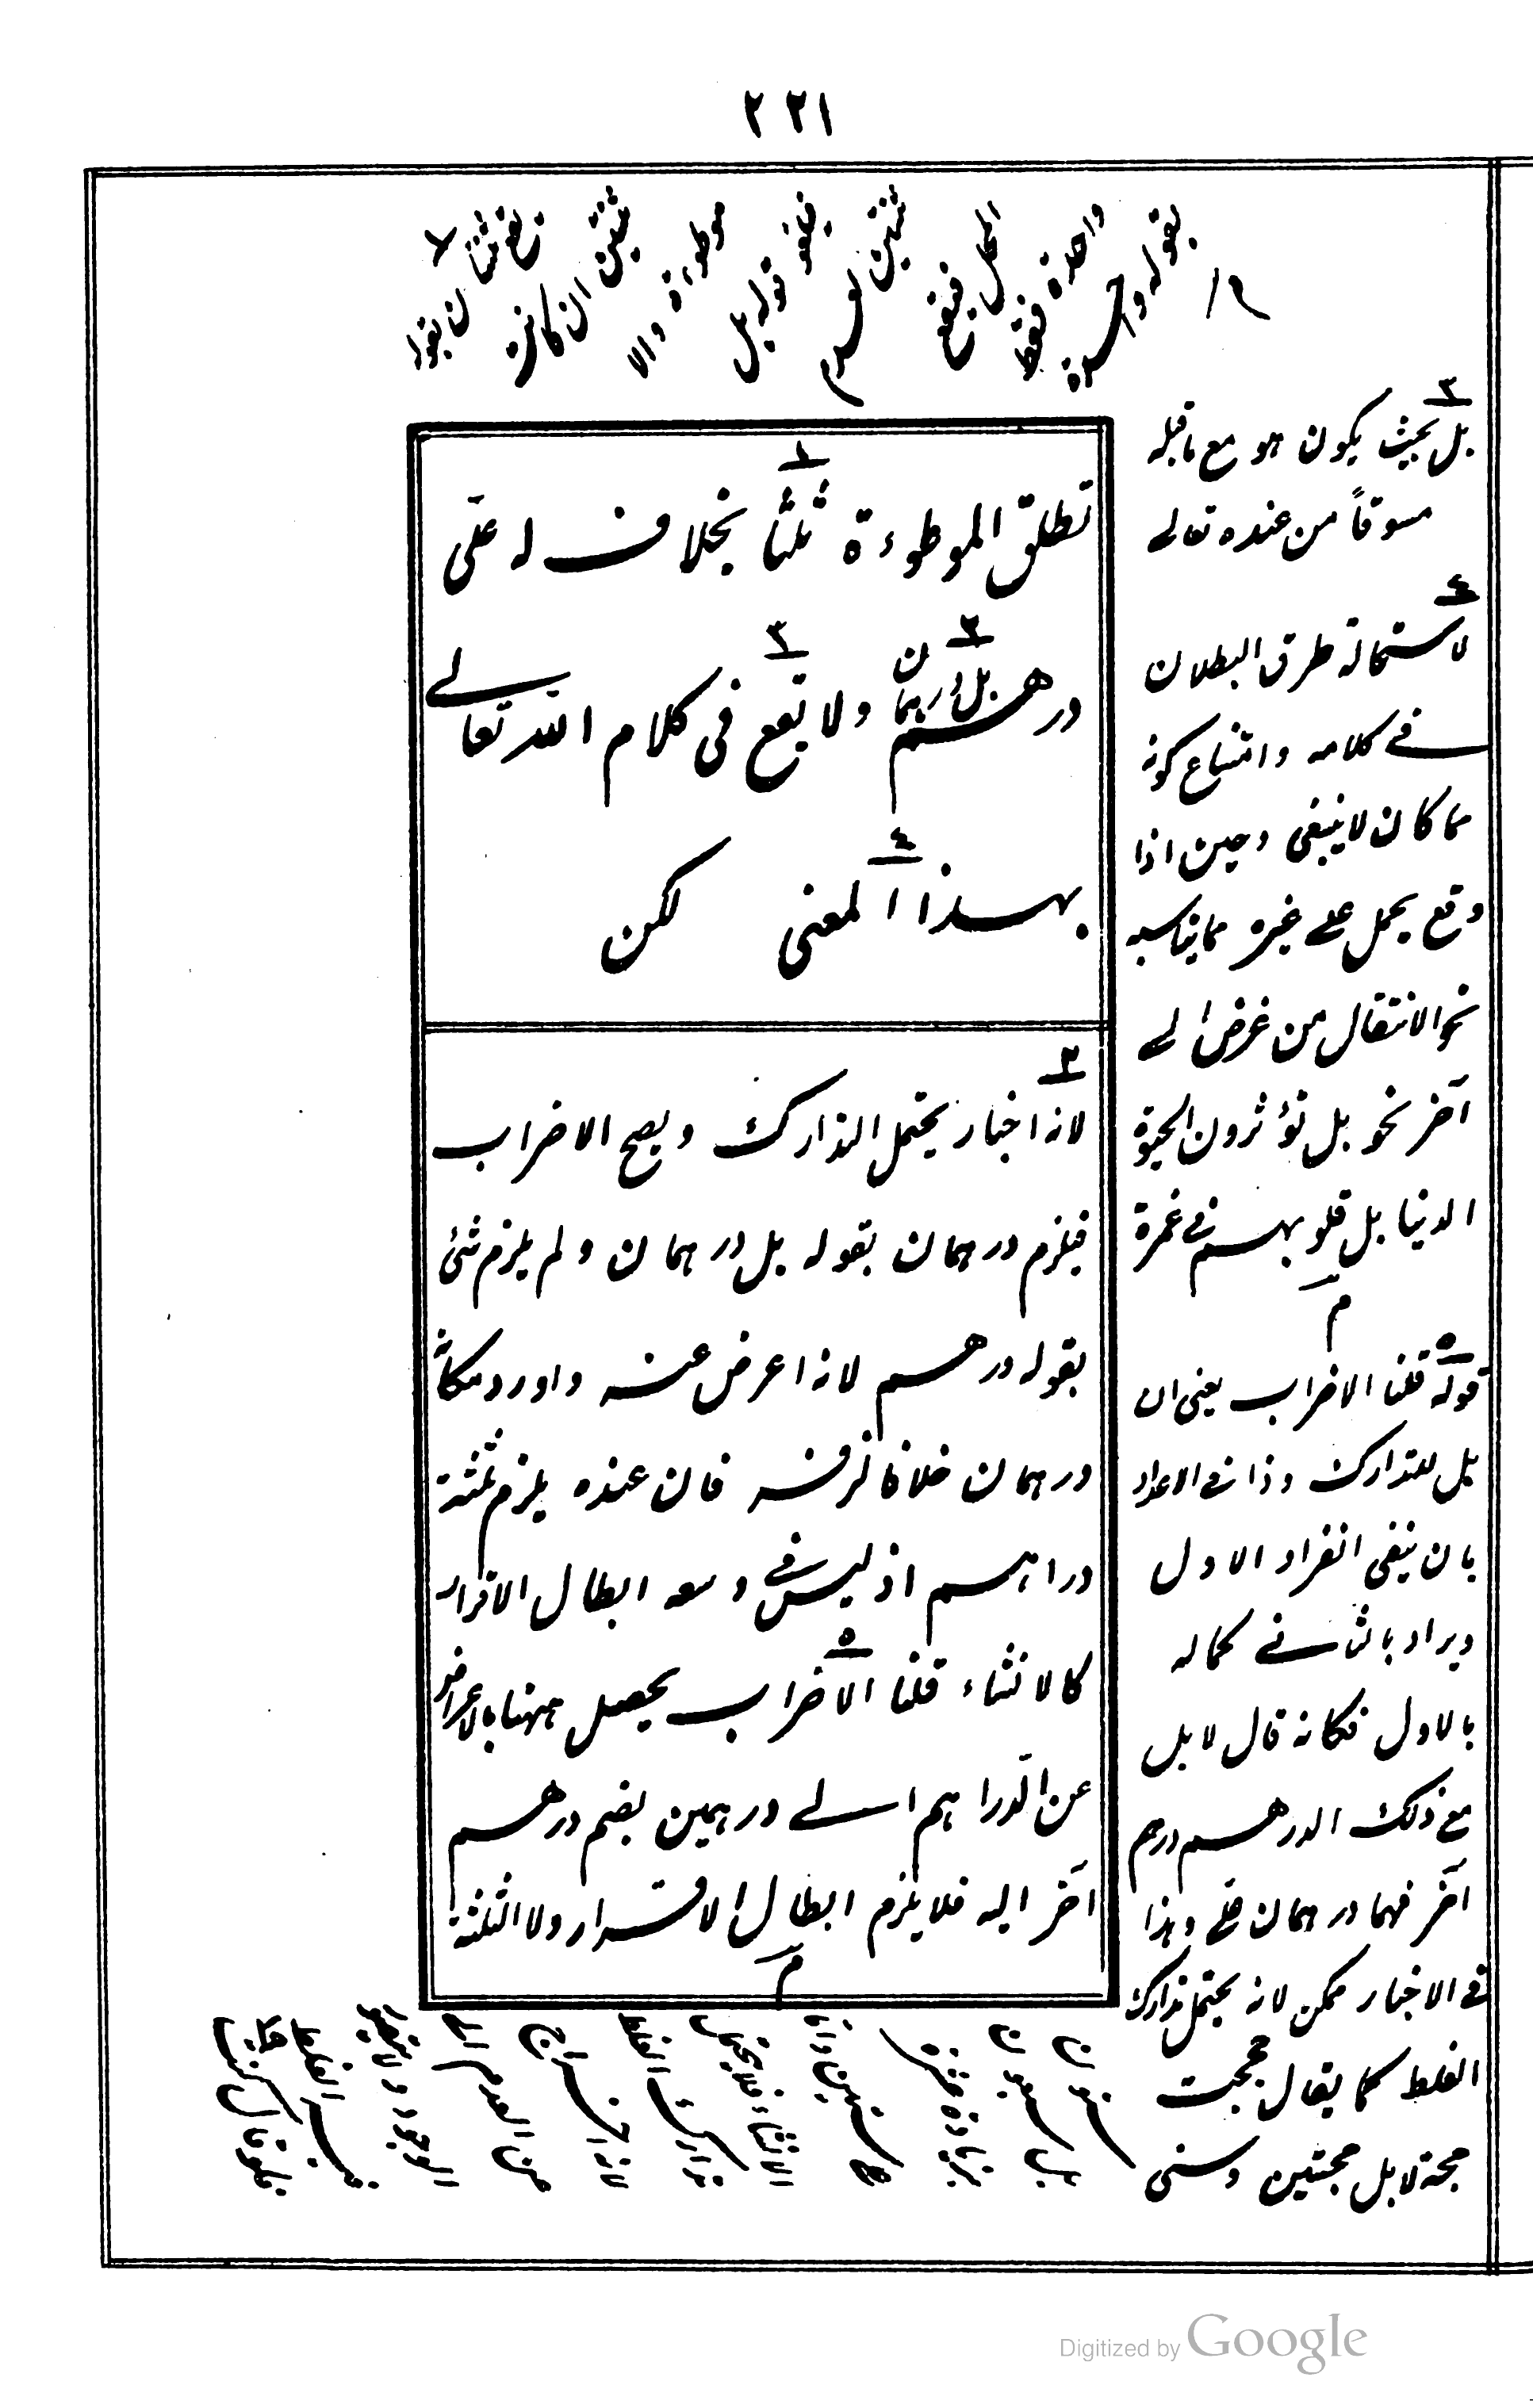 ٢٢١
بقوله واحدة
واحدة فقط
المحل فيقع
ثنتين
فيلغو قوله بل
موطوءة والا
ثنتين ان كانت
تطلق الموطوءة ثلثا بخلاف له على
درهم بل درهمان ولا تقع فى كلام الله تعالى
بهذا المعنى لكن
لانه اخبار يحتمل التدارك ويصح الاضراب
فيلزم درهمان بقوله بل درهمان ولم يلزم شئ
بقوله درهم لانه اعرض عنه واورد مكانه
درهمان خلافا لزفر فان عنده يلزم ثلثة
دراهم اذ ليس فى وسعه ابطال الاقرار
كالانشاء قلنا الاضراب يحصل ههنا بالاعراض
عن الدراهم الى درهمين بضم درهم
آخر اليه فلا يلزم ابطال الاقرار ولا الثلثة
م
بل بحيث يكون هو مع ما قبله
مسوقاً من عنده تعالى
لاستحالة طرق البطلان
فى كلامه وامتناع كونه
مما كان لا ينبغى وحين اذا
وقع يحمل على غيره مما يناسبه
نحو الانتقال من غرض الى
آخر نحو بل تؤثرون الحيوة
الدنيا بل قلوبهم فى غمرة
م
قوله قلنا الاضراب يعنى ان
بل للتدارك وذا فى الاعداد
بان ينفى انفراد الاول
ويراد بالثانى كماله
بالاول فكانه قال لا بل
مع ذلك الدرهم درهم
آخر فهما درهمان على وهذا
فى الاخبار ممكن لانه يحتمل تدارك
الغلط كما يقال حججت
حجة لا بل حجتين وسنى
ستون
بل سبعون
بزيادة عشرة
الانشاء فلا يحتمل
تدارك الغلط
لانه اخراج
من العدم الى
الوجود
Digitized by Google